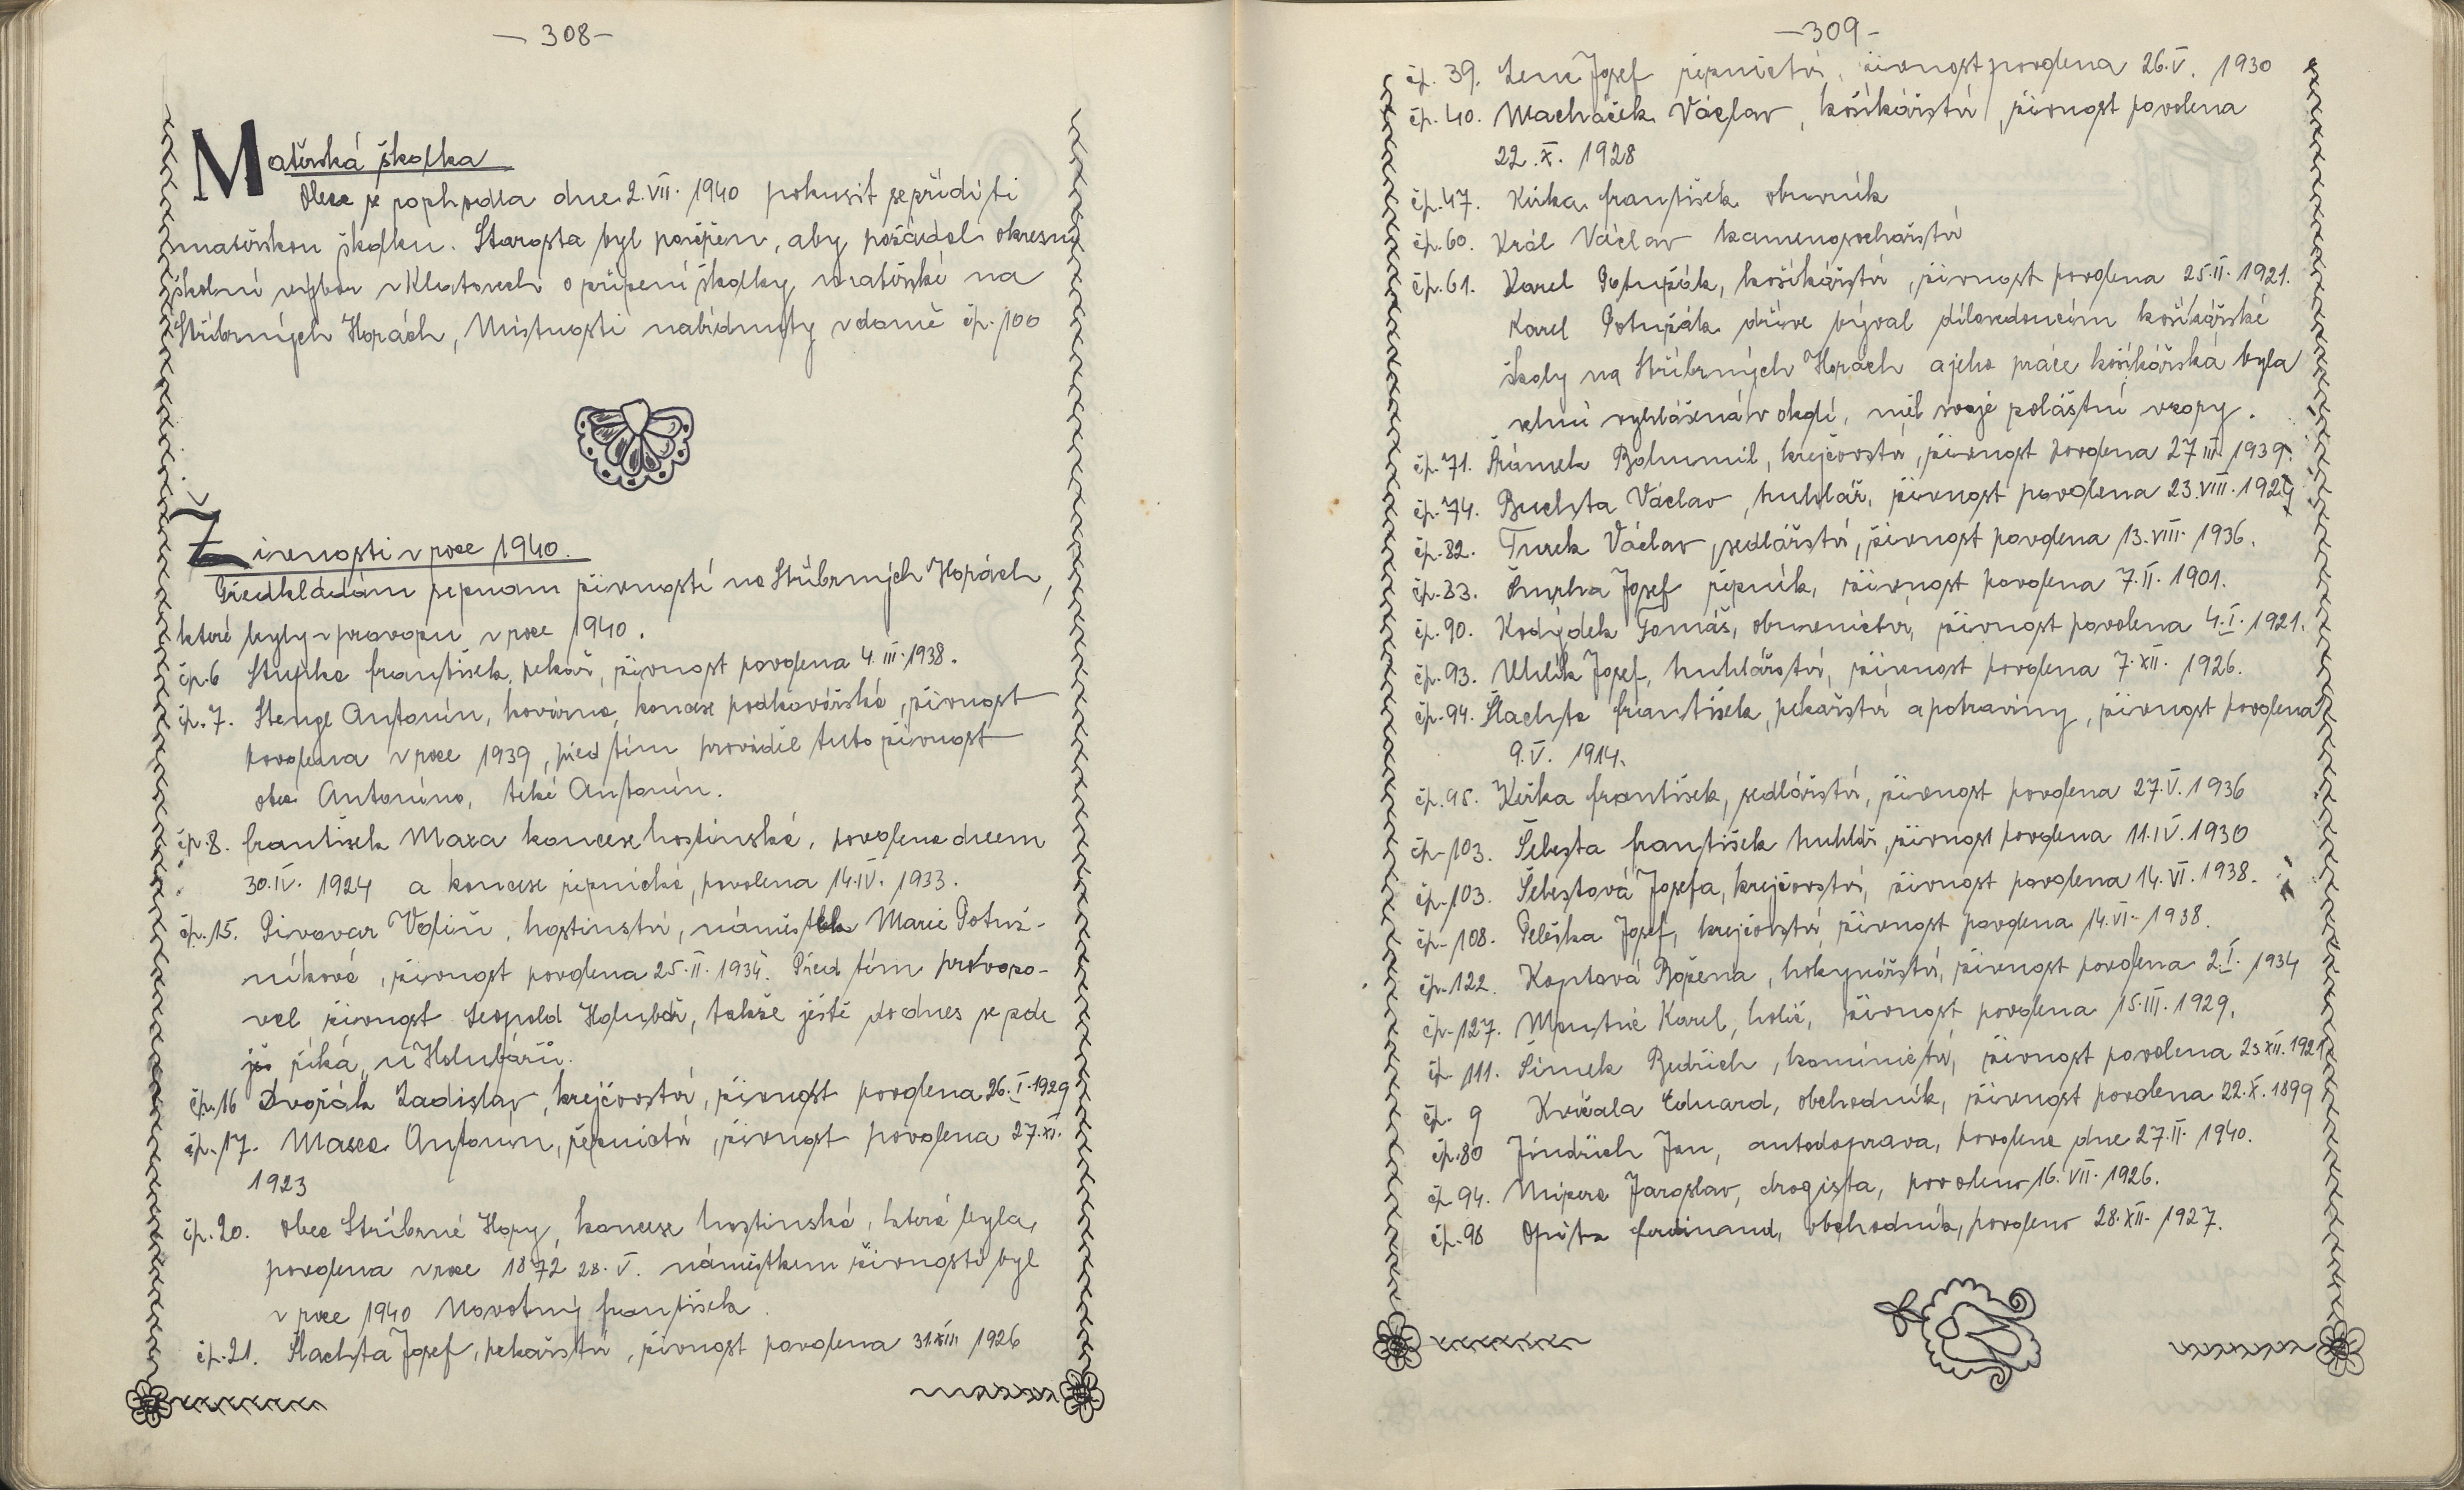 — 308 —
Mateřská školka
Obec se rozhodla dne 2. VII. 1940 pokusit se zříditi
mateřskou školku. Starosta byl pověřen, aby požádal okresní
školní výbor v Klatovech o zřízení školky mateřské na
Stříbrných Horách, Místnosti nabídnuty v domě čp. 100
Živnosti v roce 1940.
Předkládám seznam živností na Stříbrných Horách,
které byly v provozu v roce 1940.
čp. 6 Stupka František, pekař, živnost povolena 4. III. 1938.
čp. 7. Stengl Antonín, kovárna, koncese podkovářská, živnost
povolena v roce 1939, před tím prováděl tuto živnost
otec Antonína, také Antonín.
čp. 8. František Maxa koncese hostinská, povolena dnem
30. IV. 1924 a koncese řeznická, povolena 14. IV. 1933.
čp. 15. Pivovar Volšin, hostinství, náměstek Marie Potuž-
níková, živnost povolena 25. II. 1934. Před tím provozo-
val živnost Leopold Holubář, takže ještě do dnes se zde
říká „u Holubářů.
čp. 16 Dvořák Ladislav, krejčovství, živnost povolena 26. I. 1929
čp. 17. Maxa Antonín, řeznictví, živnost povolena 27. XI.
1923
čp. 20. Obec Stříbrné Hory, koncese hostinská, která byla,
povolena v roce 1872 28. V. náměstkem živnosti byl
v roce 1940 Novotný František.
čp. 21. Šlachta Josef, pekařství, živnost povolena 1926
— 309 —
čp. 39. Josef řeznictví, živnost povolena 26. V. 1930
čp. 40. Macháček Václav, košíkářství, živnost povolena
22. X. 1928
čp. 47. Kůrka František obuvník
čp. 60. Král Václav kamenosochařství
čp. 61. Karel Potužák, košíkářství, živnost povolena 25. II. 1921.
Karel Potužák dříve býval dílovedoucím košíkářské
školy na Stříbrných Horách a jeho práce košíkářská byla
velmi vyhlášená v okolí, měl svoje zvláštní vzory.
čp. 71. Šrámek Bohumil, krejčovství, živnost povolena 27 III. 1939.
čp. 74. Buchta Václav, truhlář, živnost povolena 23. VIII. 1929
čp. 82. Turek Václav, sedlářství, živnost povolena 13. VIII. 1936.
čp. 83. Josef řezník, živnost povolena 7. II. 1901.
čp. 90. Kodýdek Tomáš, obuvnictví, živnost povolena 4. I. 1921.
čp. 93. Uhlík Josef, truhlářství, živnost povolena 7. XII. 1926.
čp. 94. Šlachta František, pekařství a potraviny, živnost povolena
9. V. 1914.
čp. 95. Kůrka František, sedlářství, živnost povolena 27. V. 1936
čp. 103. Šebesta František truhlář, živnost povolena 11. IV. 1930
čp. 103. Šebestová Josefa, krejčovství, živnost povolena 14. VI. 1938.
čp. 108. Peleška Josef, krejčovství, živnost povolena 14. VI. 1938.
čp. 122. Koptová Božena, hokynářství, živnost povolena 2. I. 1934
čp. 127. Karel, holič, živnost povolena 15. III. 1929.
čp. 111. Šimek Bedřich, kominictví, živnost povolena 23 XII. 1921
čp. 9 Kvíčala Eduard, obchodník, živnost povolena 22. X. 1899
čp. 80 Jindřich Jan, autodoprava, povolena dne 27. II. 1940.
čp. 94. Jaroslav, drogista, povoleno 16. VII. 1926.
čp. 98 Opita Ferdinand, obchodník, povoleno 28. XII. 1927.